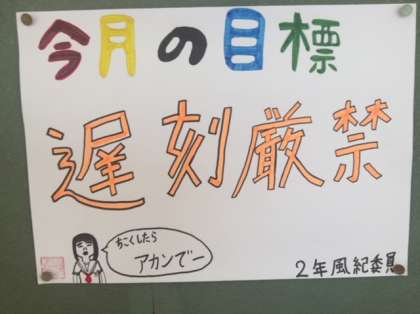 今月の目標
遅刻厳禁
ちこくしたら
アカンでー
2年風紀委員